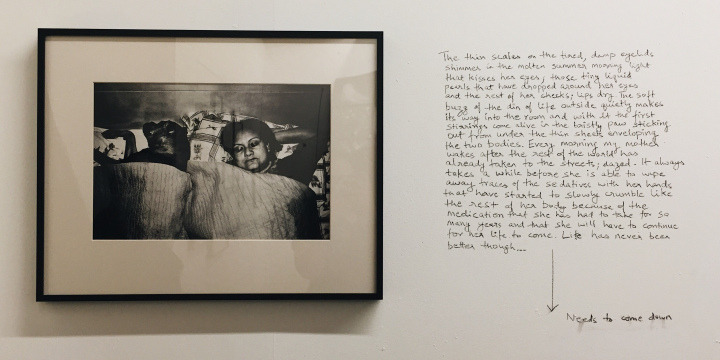 The thin scales on the tired, damp eyelids
shimmer in the molten summer morning light
that kisses her eyes, those tiny liquid
pearls that have dropped around her eyes
and the rest of her cheeks; lips dry. The soft
buzz of the din of life outside quietly makes
its way into the room and with it the first
stirrings come alive in the paw sticking
out from under the thin sheets enveloping
the two bodies. Every morning my mother
wakes after the rest of the world has
already taken to the streets, dazed. It always
takes a while before she is able to wipe
away traces of the sedatives with her hands
that have started to slowly crumble like
the rest of her body because of the
medication that she has had to take for so
many years and that she will have to continue
for her life to come. Life has never been
better though....
Needs to come down